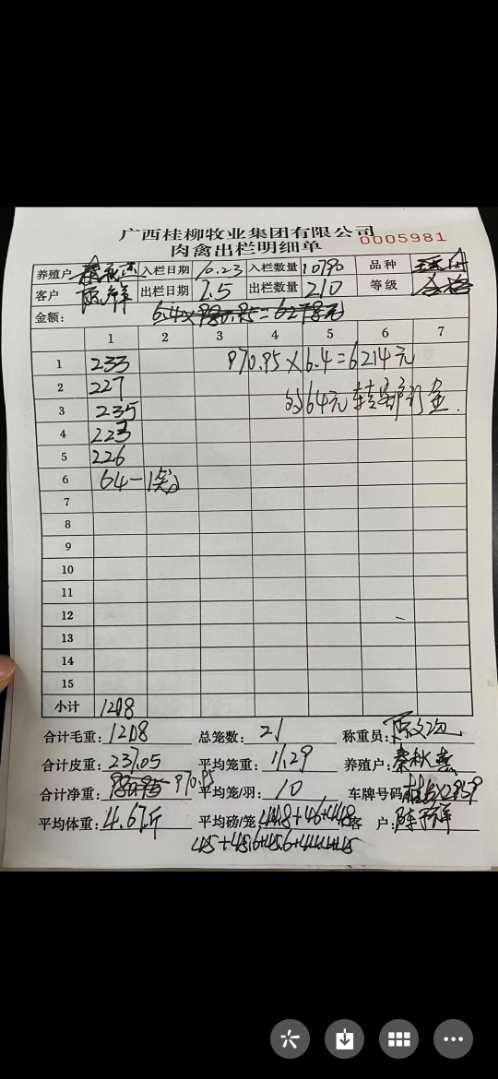 广西桂柳牧业集团有限公司
肉禽出栏明细单 0005981
养殖户 入栏日期 10.23 入栏数量 10790 品种
客户 出栏日期 1.5 出栏数量 210 等级 合格
金额: 6.4×980.95=6278元
1 2 3 4 5 6 7
1 233 970.95×6.4=6214元
2 227
3 235 64元
4 223
5 226
6 64-1
7
8
9
10
11
12
13
14
15
小计 1208
合计毛重: 1208 总笼数: 21 称重员:
合计皮重: 237.05 平均笼重: 11.29 养殖户: 秦秋燕
合计净重: 970.95 平均笼/羽: 10 车牌号码
平均体重: 4.67斤 平均磅/笼: 44.8+46+44.8 客 户: